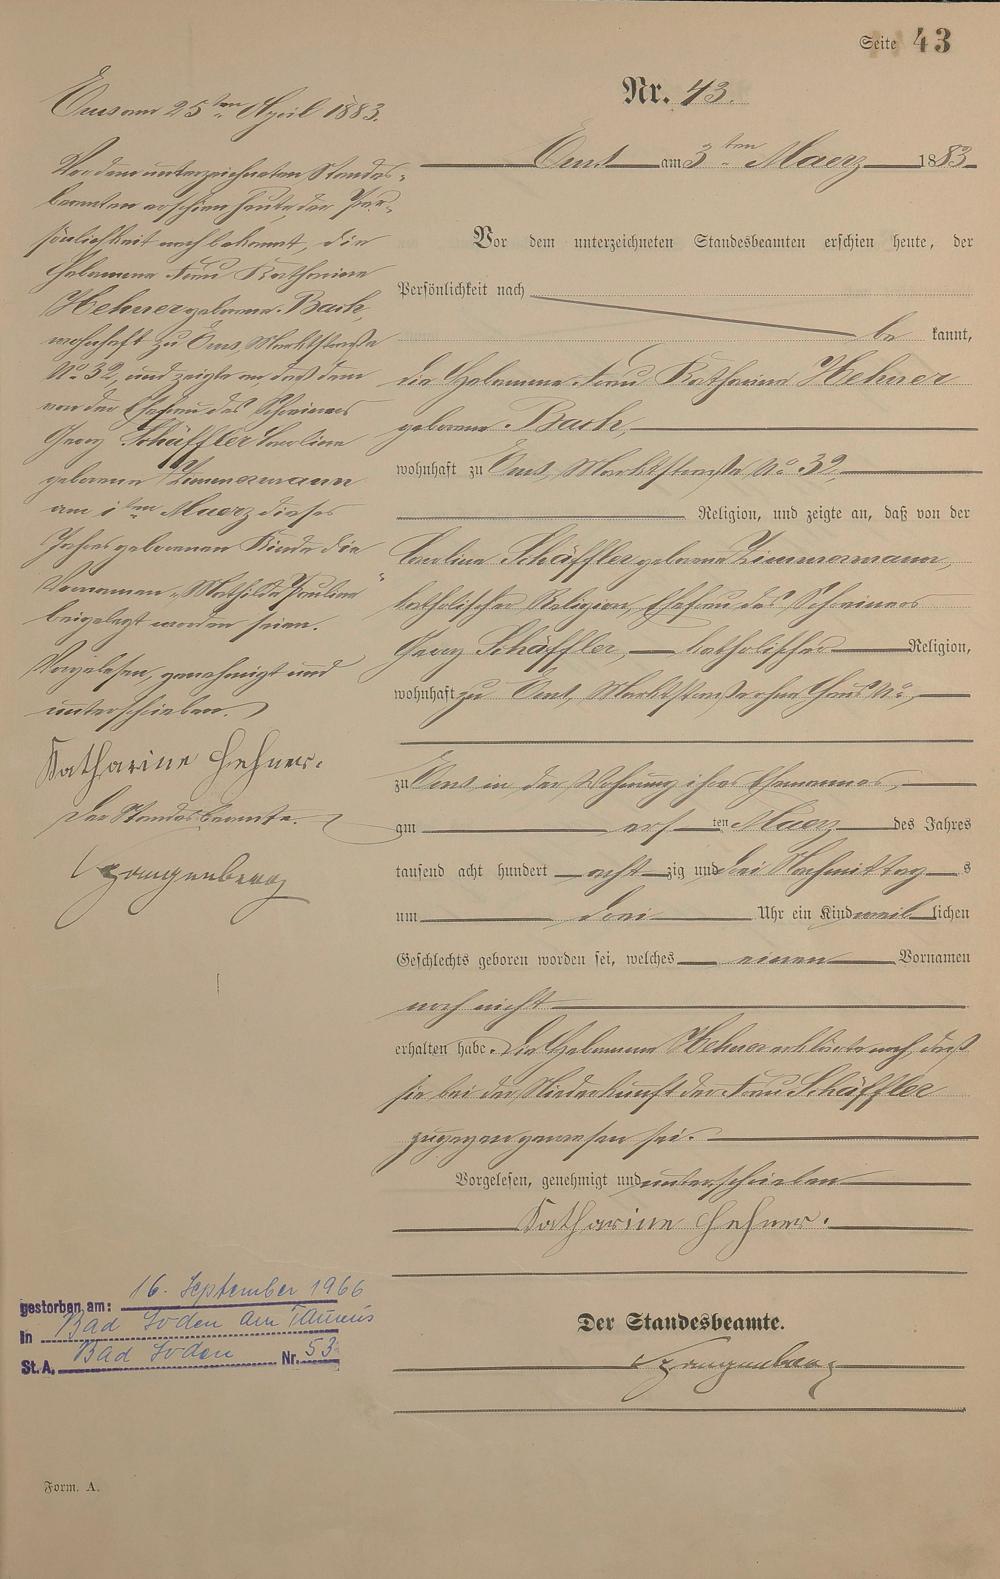 Seite 43
Nr. 43.
Ems am 3ten Maerz 1883.
Vor dem unterzeichneten Standesbeamten erschien heute, der
Persönlichkeit nach
be kannt,
die Hebamme Frau Katharina Hehner
geborene Bach,
wohnhaft zu Ems, Marktstraße No 32,
Religion, und zeigte an, daß von der
Caroline Schäffler geborene Zimmermann,
katholischer Religion, Ehefrau des Schreiners
Georg Schäffler, katholischer Religion,
wohnhaft zu Ems, Marktstraße ohne Haus No,
zu Ems in der Wohnung ihres Ehemannes,
am ersten Maerz des Jahres
tausend acht hundert achtzig und drei Nachmittags
um drei Uhr ein Kind weiblichen
Geschlechts geboren worden sei, welches einen Vornamen
noch nicht
erhalten habe. Die Hebamme Hehner erklärte noch, daß
sie bei der Niederkunft der Frau Schäffler
zugegen gewesen sei.
Vorgelesen, genehmigt und unterschrieben
Katharine Hehner.
Der Standesbeamte.
Ems am 25ten April 1883.
Vor dem unterzeichneten Standes-
beamten erschien heute, der Per-
sönlichkeit nach bekannt, die
Hebamme Frau Katharina
Hehner geborene Bach,
wohnhaft zu Ems, Marktstraße
No 32, und zeigte an, daß dem
von der Ehefrau des Schreiners
Georg Schäffler Caroline
geborene Zimmermann
am 1ten Maerz dieses
Jahres geborenen Kinde die
Vornamen „Mathilde Pauline"
beigelegt worden seien.
Vorgelesen, genehmigt und
unterschrieben.
Katharine Hehner.
Der Standesbeamte.
gestorben am: 16. September 1966
in Bad Soden am Taunus
St.A. Bad Soden Nr. 53
Form. A.